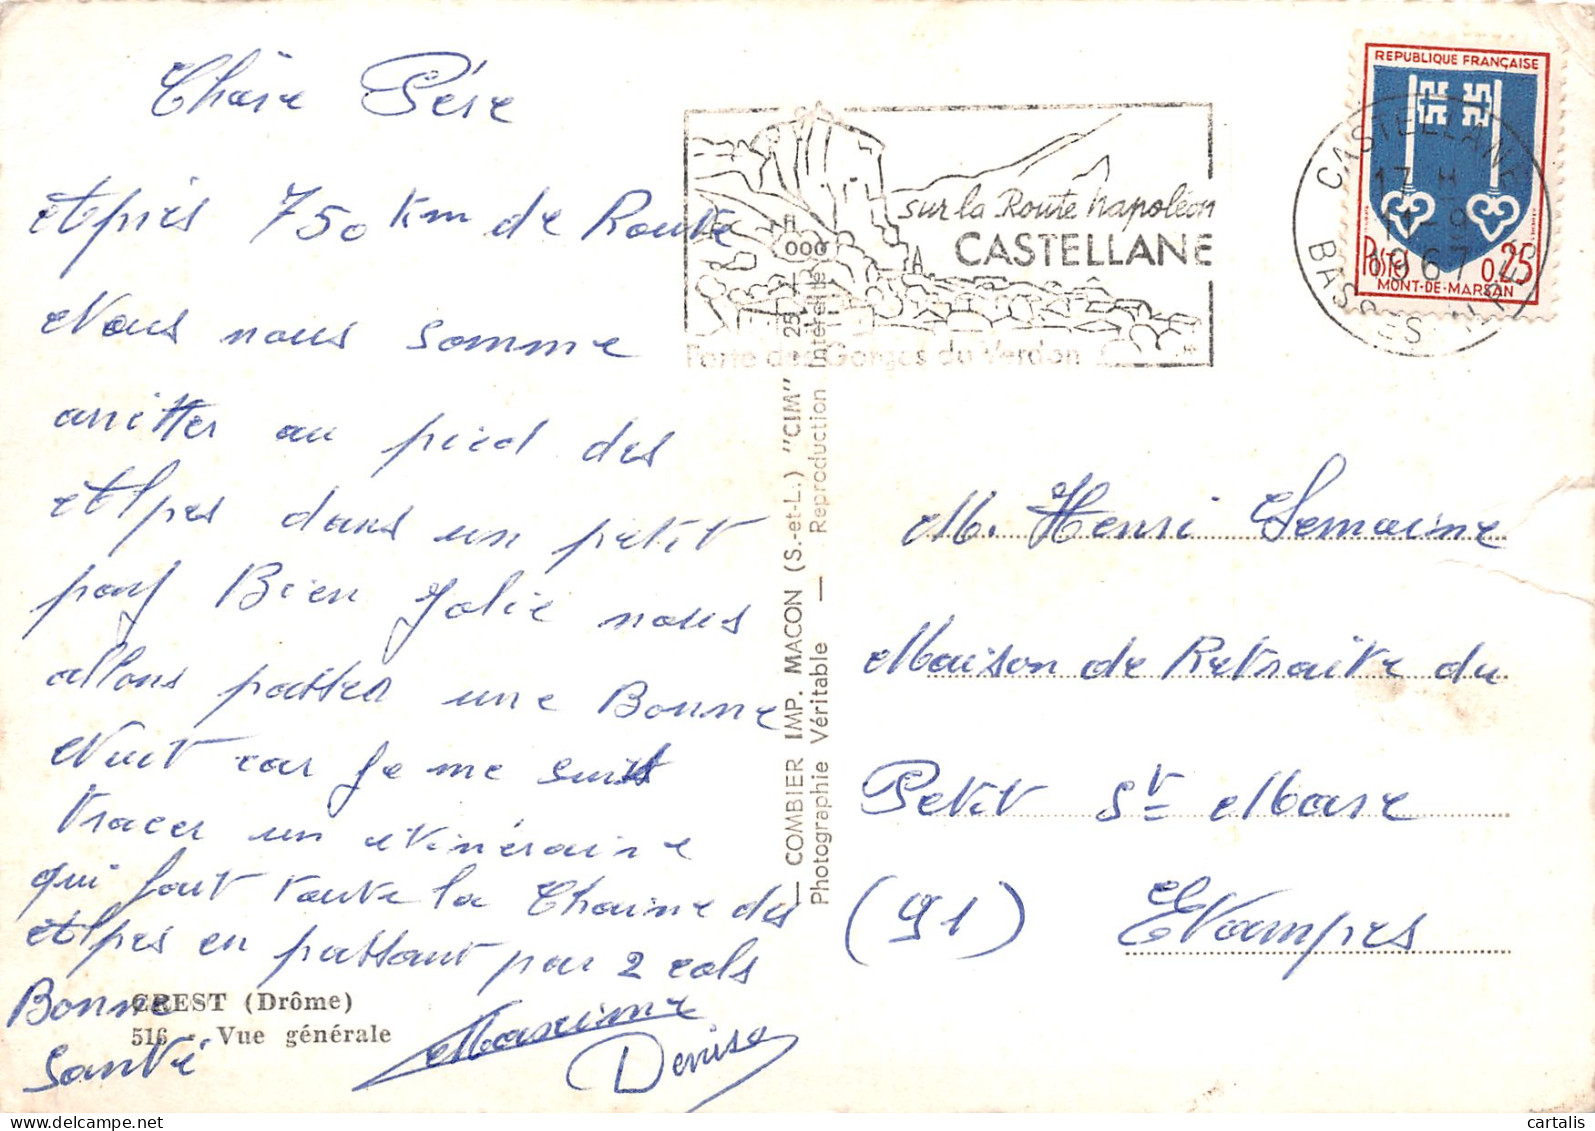 Chère Père
Après 750 km de Route
Nous nous somme
arritter au pied des
Alpes dans un petit
pay Bien Jolie nous
allons passer une Bonne
Nuit car Je me suis
tracer un itinéraire
qui fout toute la Chaine des
Alpes en passant par 2 cols
Bonne
Santé
Maxime
Denise
CREST (Drôme)
516 Vue générale
COMBIER IMP. MACON (S.-et-L.) "CIM"
Photographie Véritable — Reproduction Interdite
sur la Route Napoléon
CASTELLANE
Porte des Gorges du Verdon
REPUBLIQUE FRANÇAISE
Postes 0,25
MONT-DE-MARSAN
CASTELLANE
17 H
11-9
1967
BASSES-ALPES
M. Henri Lemaine
Maison de Retraite du
Petit St Mare
(91) Etampes
cartalis